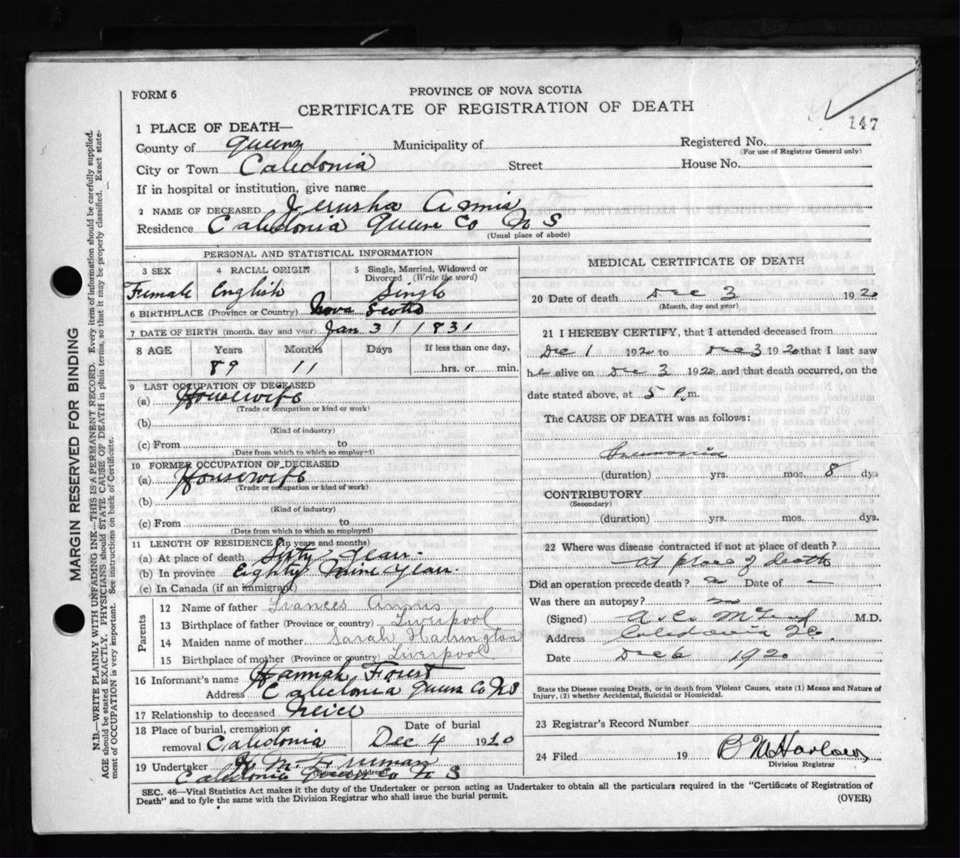 FORM 6
PROVINCE OF NOVA SCOTIA
CERTIFICATE OF REGISTRATION OF DEATH
147
1 PLACE OF DEATH—
County of Queens Municipality of Registered No.
(For use of Registrar General only)
City or Town Caledonia Street House No.
If in hospital or institution, give name
2 NAME OF DECEASED Jerusha Annis
Residence Caledonia Queens Co N S
(Usual place of abode)
PERSONAL AND STATISTICAL INFORMATION
3 SEX 4 RACIAL ORIGIN 5 Single, Married, Widowed or Divorced (Write the word)
Female English Single
6 BIRTHPLACE (Province or Country) Nova Scotia
7 DATE OF BIRTH (month, day and year) Jan 31 1831
8 AGE Years Months Days If less than one day,
89 11 hrs. or min.
9 LAST OCCUPATION OF DECEASED
(a) Housewife
(Trade or occupation or kind or work)
(b)
(Kind of industry)
(c) From to
(Date from which to which so employed)
10 FORMER OCCUPATION OF DECEASED
(a) Housewife
(Trade or occupation or kind of work)
(b)
(Kind of industry)
(c) From to
(Date from which to which so employed)
11 LENGTH OF RESIDENCE (in years and months)
(a) At place of death Sixty Years
(b) In province Eighty Nine Years
(c) In Canada (if an immigrant)
Parents
12 Name of father Frances Annis
13 Birthplace of father (Province or country) Liverpool
14 Maiden name of mother Sarah Harrington
15 Birthplace of mother (Province or country) Liverpool
16 Informant's name Hannah Forest
Address Caledonia Queens Co N S
17 Relationship to deceased Neice
18 Place of burial, cremation or removal Caledonia Date of burial Dec 4 1920
19 Undertaker M. Freeman
Caledonia Queens Co N S
MEDICAL CERTIFICATE OF DEATH
20 Date of death Dec 3 1920
(Month, day and year)
21 I HEREBY CERTIFY, that I attended deceased from
Dec 1 1920 to Dec 3 1920 that I last saw
he alive on Dec 3 1920 and that death occurred, on the
date stated above, at 5 P. m.
The CAUSE OF DEATH was as follows:
Pneumonia
(duration) yrs. mos. 8 dys
CONTRIBUTORY
(Secondary)
(duration) yrs. mos. dys.
22 Where was disease contracted if not at place of death?
at place of death
Did an operation precede death? Date of —
Was there an autopsy? no
(Signed) M.D.
Address Caledonia
Date Dec 6 1920
State the Disease causing Death, or in death from Violent Causes, state (1) Means and Nature of
Injury, (2) whether Accidental, Suicidal or Homicidal.
23 Registrar's Record Number
24 Filed 19 Harlow
Division Registrar
SEC. 46—Vital Statistics Act makes it the duty of the Undertaker or person acting as Undertaker to obtain all the particulars required in the "Certificate of Registration of
Death" and to fyle the same with the Division Registrar who shall issue the burial permit.
(OVER)
MARGIN RESERVED FOR BINDING
N.B.—WRITE PLAINLY WITH UNFADING INK—THIS IS A PERMANENT RECORD. Every item of information should be carefully supplied.
AGE should be stated EXACTLY. PHYSICIANS should STATE CAUSE OF DEATH in plain terms, so that it may be properly classified. Exact statement of OCCUPATION is very important. See instructions on back of Certificate.